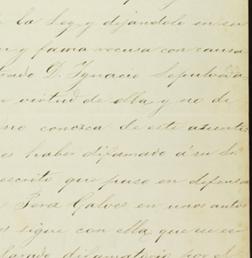 la Ley, y dejándole en su
y fama recusa con causa
D. Ignacio Sepúlveda
virtud de ella, y no de
no conozca de este asunto
haber difamado á su
escrito que puso en defensa
Perez Galvez en unos autos
sigue con ella que se
difamatorio por el